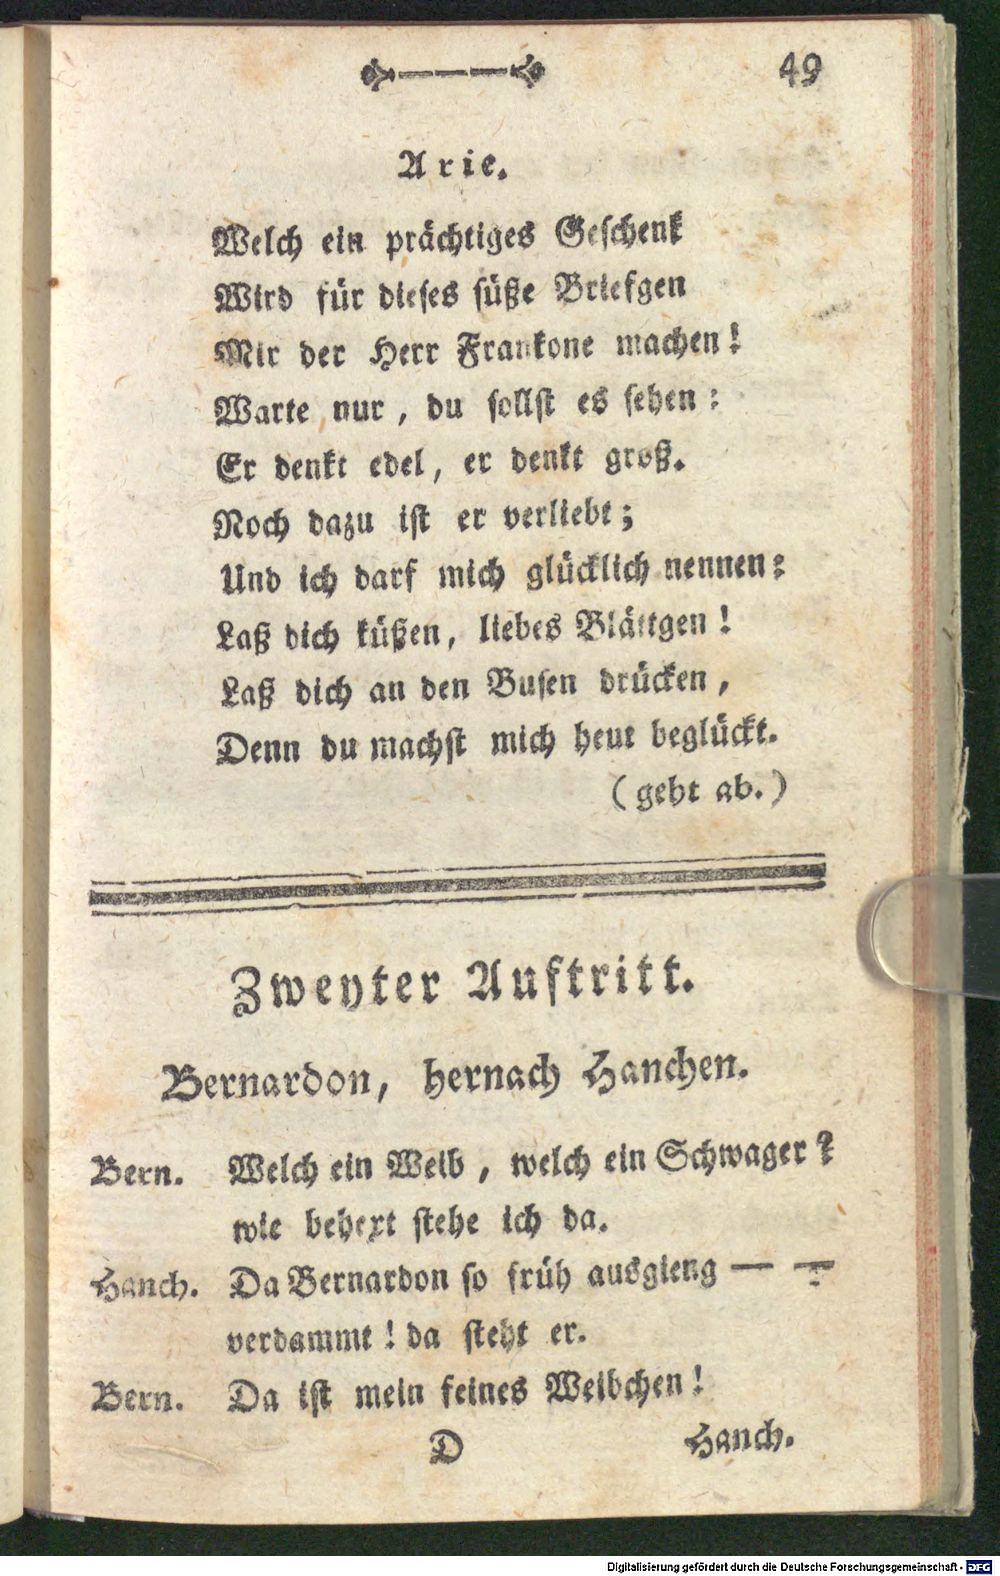 49
Arie.
Welch ein prächtiges Geschenk
Wird für dieses süße Briefgen
Mir der Herr Frankone machen!
Warte nur, du sollst es sehen:
Er denkt edel, er denkt groß.
Noch dazu ist er verliebt;
Und ich darf mich glücklich nennen:
Laß dich küßen, liebes Blättgen!
Laß dich an den Busen drücken,
Denn du machst mich heut beglückt.
(geht ab.)
Zweyter Auftritt.
Bernardon, hernach Hanchen.
Bern. Welch ein Weib, welch ein Schwager?
wie behext stehe ich da.
Hanch. Da Bernardon so früh ausgieng — —
verdammt! da steht er.
Bern. Da ist mein feines Weibchen!
D Hanch.
Digitalisierung gefördert durch die Deutsche Forschungsgemeinschaft - DFG